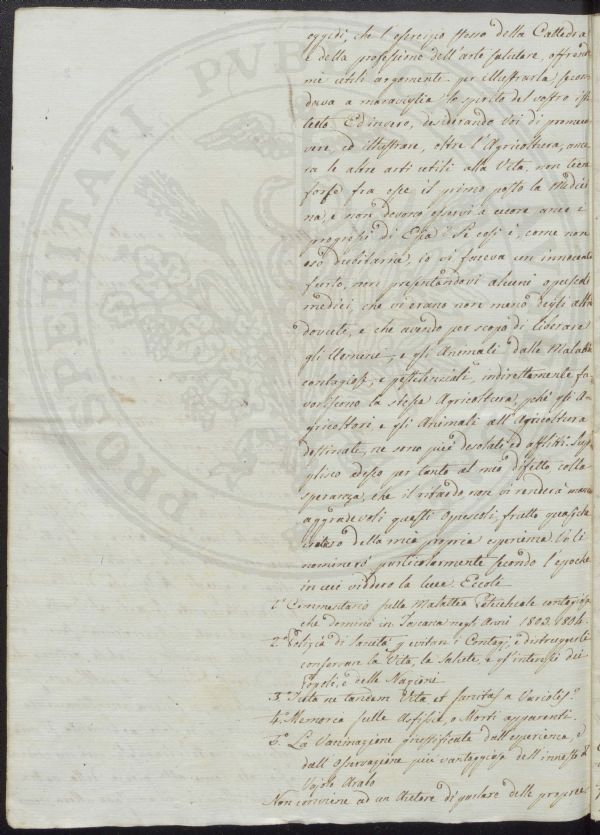 oggidì, che l'esercizio stesso della Cattedra
e della professione dell'arte salutare, offrendo
mi utili argomenti per illustrarla secon
dava a maraviglia lo spirito del vostro isti
tuto. Ed invero, desiderando Voi di promuo
vere, ed illustrare, oltre l'Agricoltura, anco
ra le altre arti utili alla Vita, non tiene
forse fra esse il primo posto la Medici
na, e non devono esservi a cuore anco i
progressi di Essa? Se così è, come non
oso dubitarne, io vi faceva un innocente
furto, non presentandovi alcuni opuscoli
medici, che vi erano non meno degli altri
dovuti, e che avendo per scopo di liberare
gli Uomini, e gli Animali dalle Malattie
contagiose, e pestilenziali, indirettamente fa-
voriscono la stessa Agricoltura, pchè gli A-
gricoltori e gli Animali all'Agricoltura
destinati, ne sono più desolati, ed afflitti. Sup
plisco adesso per tanto al mio difetto colla
speranza, che il ritardo non vi renderà meno
aggradevoli questi Opuscoli, frutto quasi che
della mia propria esperienza. Vi li
nominerò particolarmente secondo l'epoche
in cui viddero la luce. Eccoli
1.º Commentario sulla Malattia Petecchiale contagiosa
che dominò in Toscana negli Anni 1803. 1804.
2.º Polizia di Sanità p evitare i Contagi, e distruggerli
conservare la Vita, la Salute, e gl'interessi dei
Popoli, e delle Nazioni
3.º Tuta ne tandem Vita et sanitas a Variolis?
4.º Memoria sulle Asfissie, o Morti apparenti.
5.º La Vaccinazione giustificata dall'esperienza, e
dall'Osservazione più vantaggiosa dell'innesto di
Vajolo Arabo
Non conviene ad un Autore di parlare delle proprie
PROSPERITATI PUBLICAE